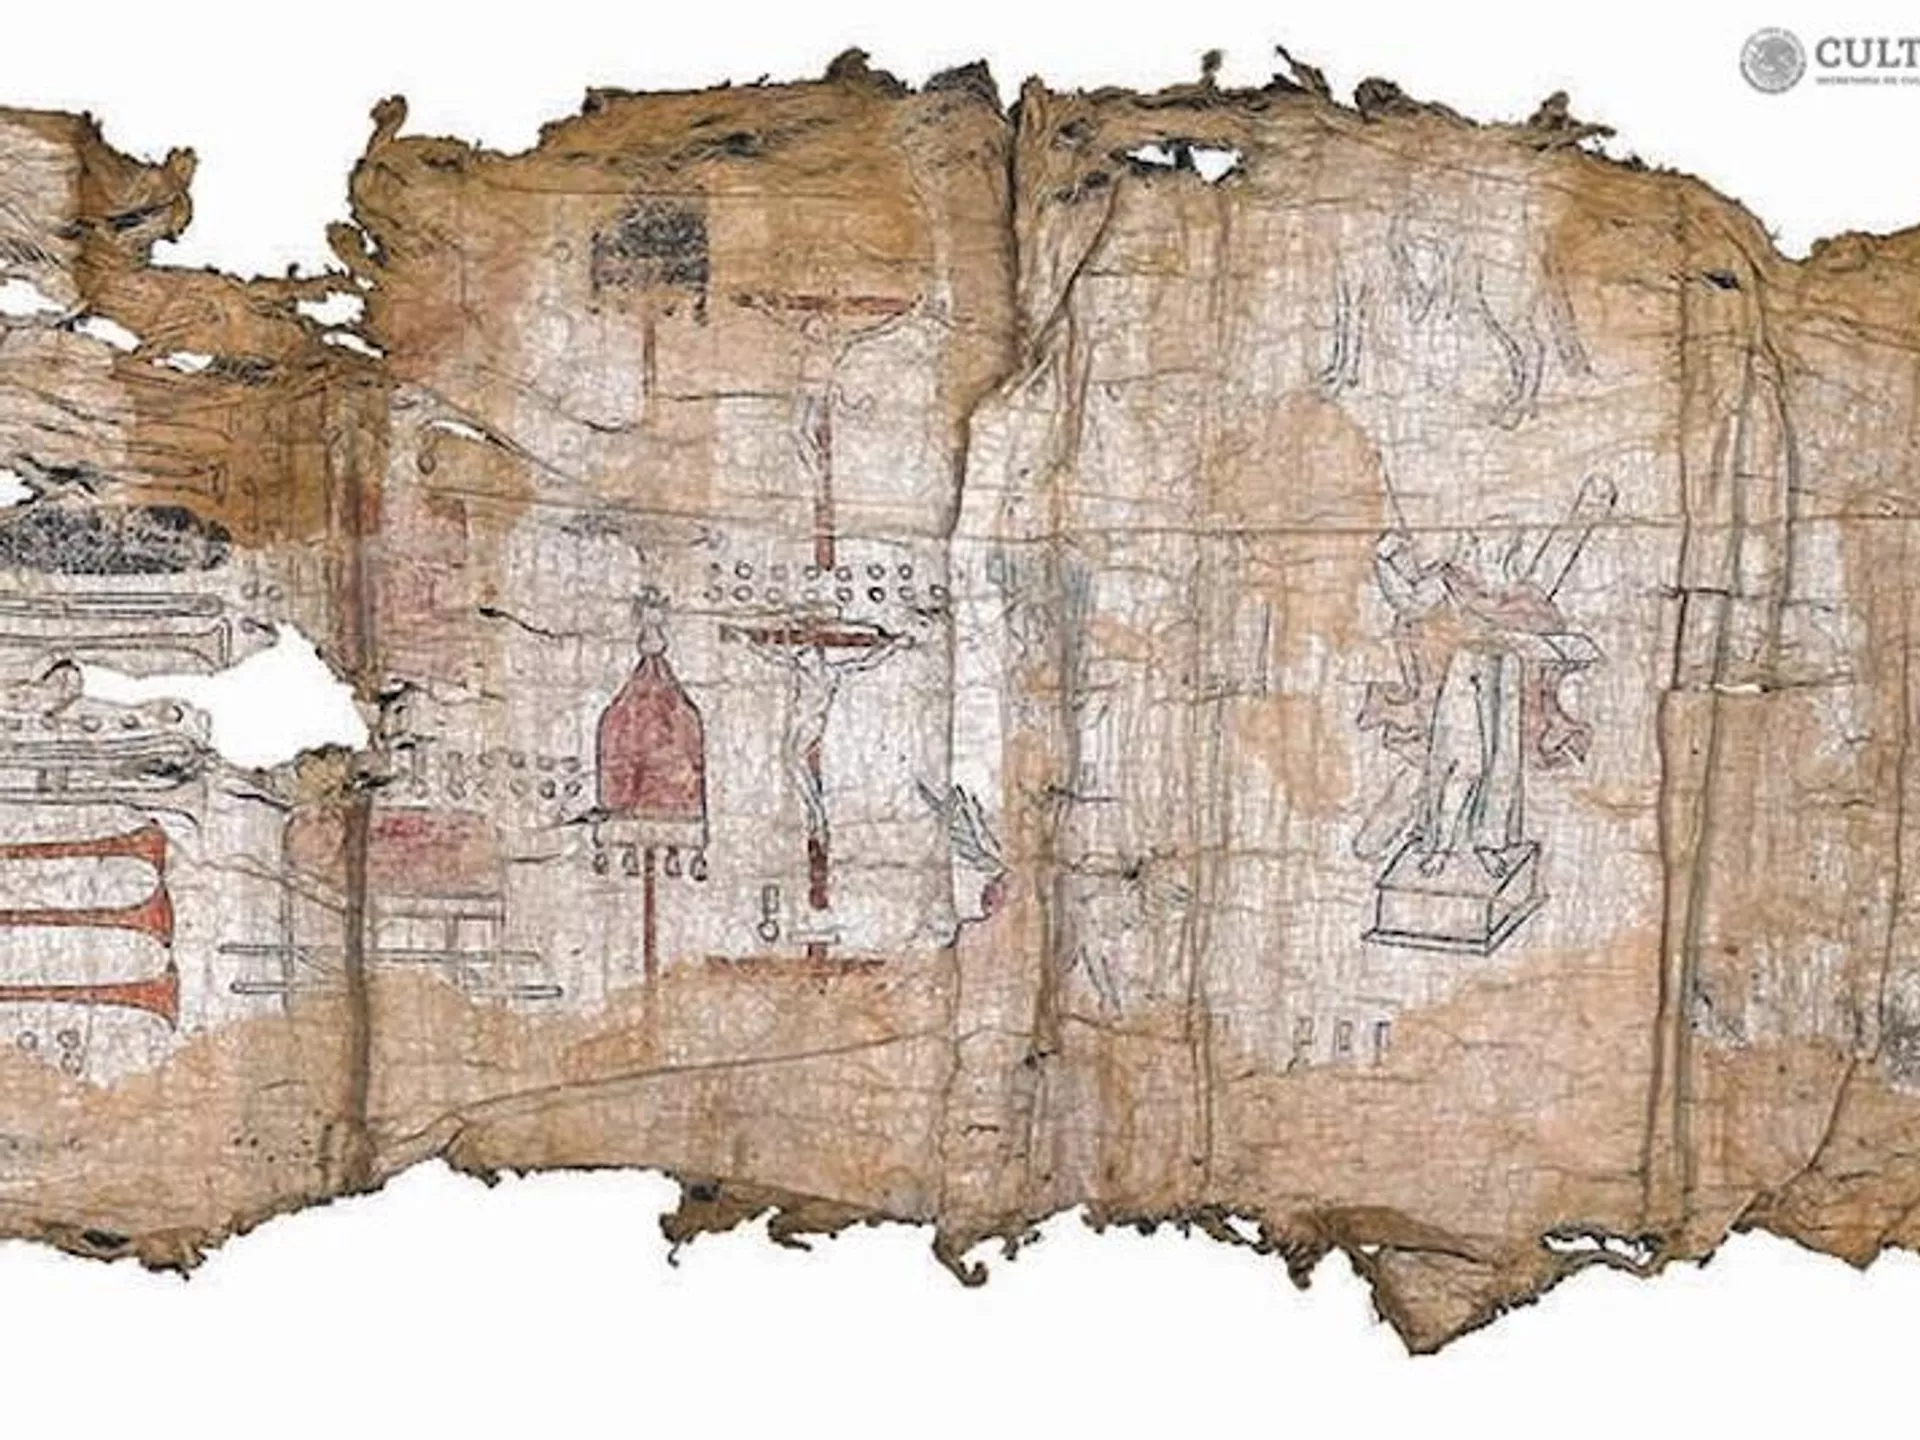 CULT
SECRETARÍA DE CUL